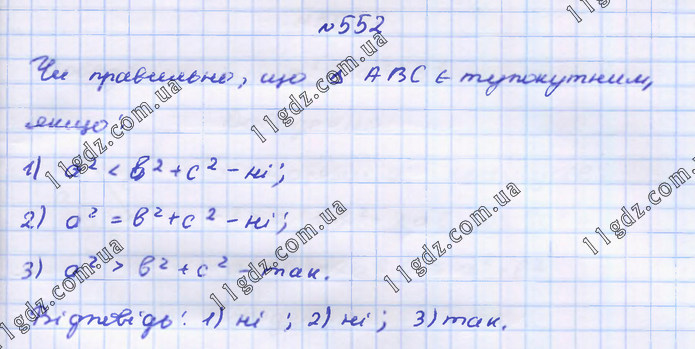 №552
Чи правильно, що △ ABC є тупокутним,
якщо:
1) a² < b² + c² - ні;
2) a² = b² + c² - ні;
3) a² > b² + c² - так.
Відповідь: 1) ні ; 2) ні; 3) так.
11gdz.com.ua
11gdz.com.ua
11gdz.com.ua
11gdz.com.ua
11gdz.com.ua
11gdz.com.ua
11gdz.com.ua